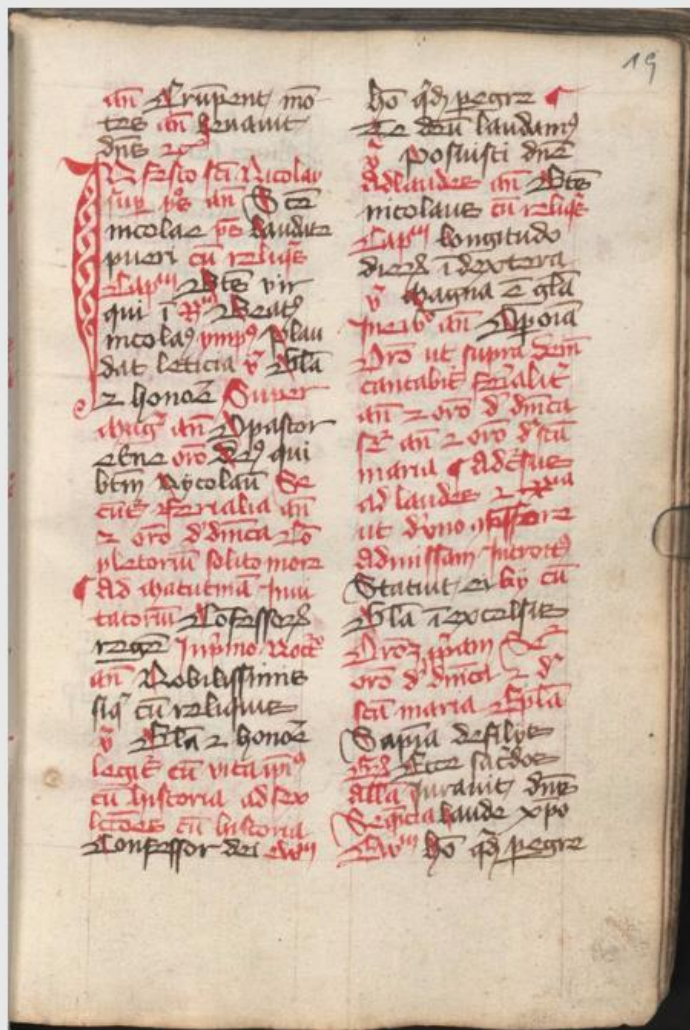 19
an̄ Erūpent mō
tes an̄ Levavit
dn̄s
IN festo sc̄i Nicolai
sup̄ p̄s an̄ S ce
nicolae p̄s Laudate
pueri cū reliq̄s
Cap̄m Bt̄s vir
qui ī Rm̄ Beatꝰ
nicolaꝰ ympꝰ Plau
dat leticia v̄ Gl̄a
⁊ honoē Super
mag̅t an̄ O pastor
et̄ne oro deꝰ qui
bt̄m Nycolaū Se
cūt ferialia an̄
⁊ oro d' dn̄ica Cō
pletoriū solito more
¶ Ad matutinā Jnui
tatoriū Cōfessorꝝ
regē In primo Noctͦ
an̄ Nobilissimis
siq̄ cū reliquis
v̄ Gl̄a ⁊ honoē
legit̄ cū vita ipiꝰ
cū historia ad sex
lectōes cū historia
Confessor dei ewm̄
hō qd̄ pegre ¶
Te deū laudamꝰ
v̄ Posuisti dn̄e
Ad laudes an̄ Bt̄s
nicolaus cū reliq̄s
Cap̄m Longitudo
dierꝝ ī dextera
v̄ Magna ē gl̄a
In ev̄ an̄ Op̄oīa
Oro ut supra
cantabit̄ ferialit̄
an̄ ⁊ oro d' dn̄ica
se᷑ an̄ ⁊ oro d' sc̄a
maria ¶
ad laudes ⁊
ut d' uno cōfessore
Ad missam Introitꝰ
Statuit ei ky cū
Gl̄a ī excelsis
Oroꝫ p̄mam
oro d' dn̄ica ⁊ d'
sc̄a maria Epl̄a
Sapīa defilijs
Gd̄ Ecce sac̄dos
All̄a Juravit dn̄s
Seq̄ncia Laude xp̄o
Ewm̄ hō qd̄ pegre